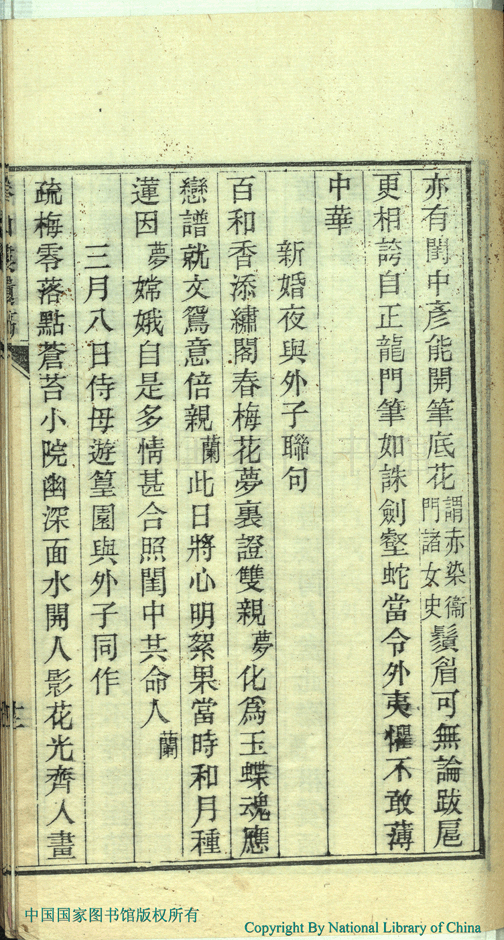 亦有閨中彥能開筆底花謂赤染衞門諸女史鬚眉可無論跋扈
更相誇自正龍門筆如誅劍壑蛇當令外夷懼不敢薄
中華
新婚夜與外子聯句
百和香添繡閣春梅花夢裏證雙親夢化爲玉蝶魂應
戀譜就文鴛意倍親蘭此日將心明絮果當時和月種
蓮因夢嫦娥自是多情甚合照閨中共命人蘭
三月八日侍母遊篁園與外子同作
疏梅零落點蒼苔小院幽深面水開人影花光齊入畫
中国国家图书馆版权所有
Copyright By National Library of China